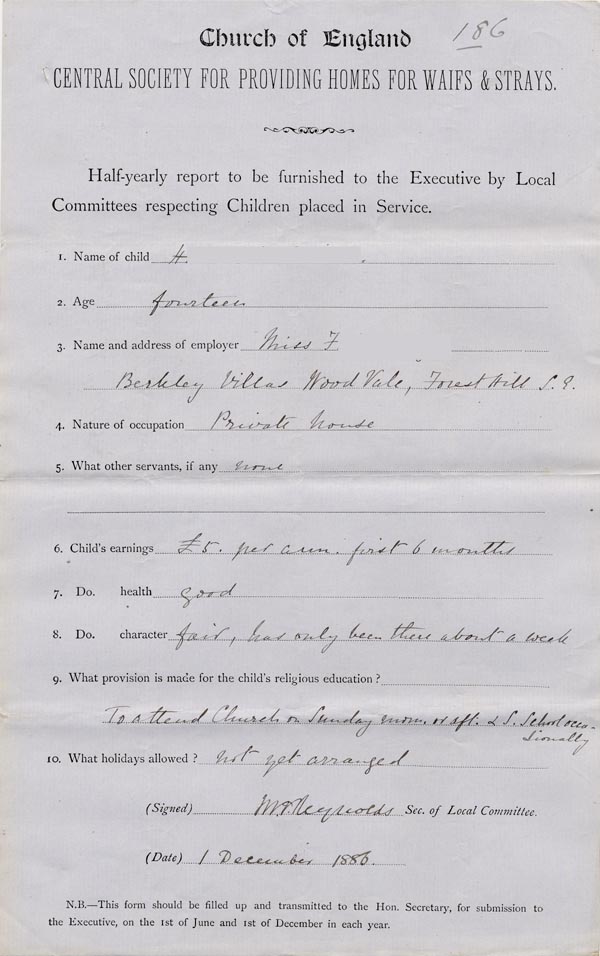 186
Church of England
CENTRAL SOCIETY FOR PROVIDING HOMES FOR WAIFS & STRAYS.
Half-yearly report to be furnished to the Executive by Local
Committees respecting Children placed in Service.
1. Name of child H.
2. Age fourteen
3. Name and address of employer Miss F
Berkley Villas Wood Vale, Forest Hill S.E.
4. Nature of occupation Private house
5. What other servants, if any none
6. Child's earnings £5. per ann. first 6 months
7. Do. health good
8. Do. character fair, has only been there about a week
9. What provision is made for the child's religious education ?
To attend Church on Sunday morn. or aft. & S. School occa-
sionally
10. What holidays allowed ? not yet arranged
(Signed) Reynolds Sec. of Local Committee.
(Date) 1 December 1886.
N.B.—This form should be filled up and transmitted to the Hon. Secretary, for submission to
the Executive, on the 1st of June and 1st of December in each year.